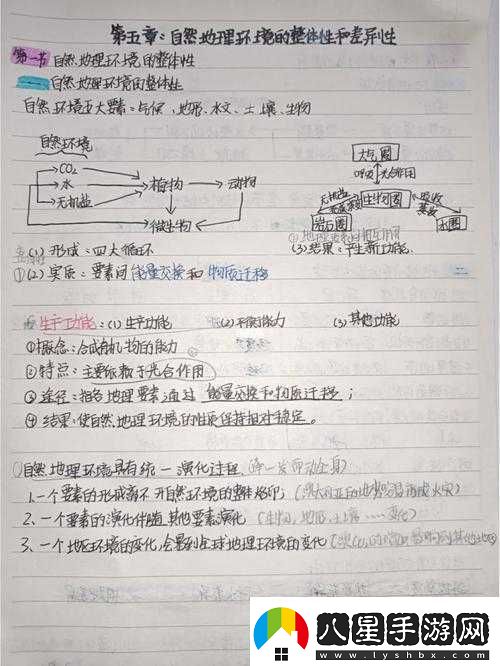 第五章：自然地理环境的整体性和差异性
第一节 自然地理环境的整体性
一 自然地理环境的整体性
自然环境五大要素：气候、地形、水文、土壤、生物
自然环境
CO₂
水
无机盐
植物
动物
微生物
大气圈
呼吸 光合作用
无机盐
生物圈
吸收
蒸发
岩石圈
水圈
(1) 形成：四大循环
(3) 结果：产生新功能
①(2) 实质：要素间能量交换和物质迁移
生产功能：(1) 生产功能 (2) 平衡能力 (3) 其他功能
①概念：合成有机物的能力
②特点：主要依赖于光合作用
③途径：相各地理要素通过能量交换和物质迁移；
④结果：使自然地理环境的性质保持相对稳定。
自然地理环境具有统一演化过程（牵一发而动全身）
1. 一个要素的形成离不开自然环境的整体烙印；
2. 一个要素的演化伴随其他要素演化（生物、地形、土壤……变化）
3. 一个地区环境的变化，会影响到全球地理环境的变化
八星手游网
www.lyshbx.com